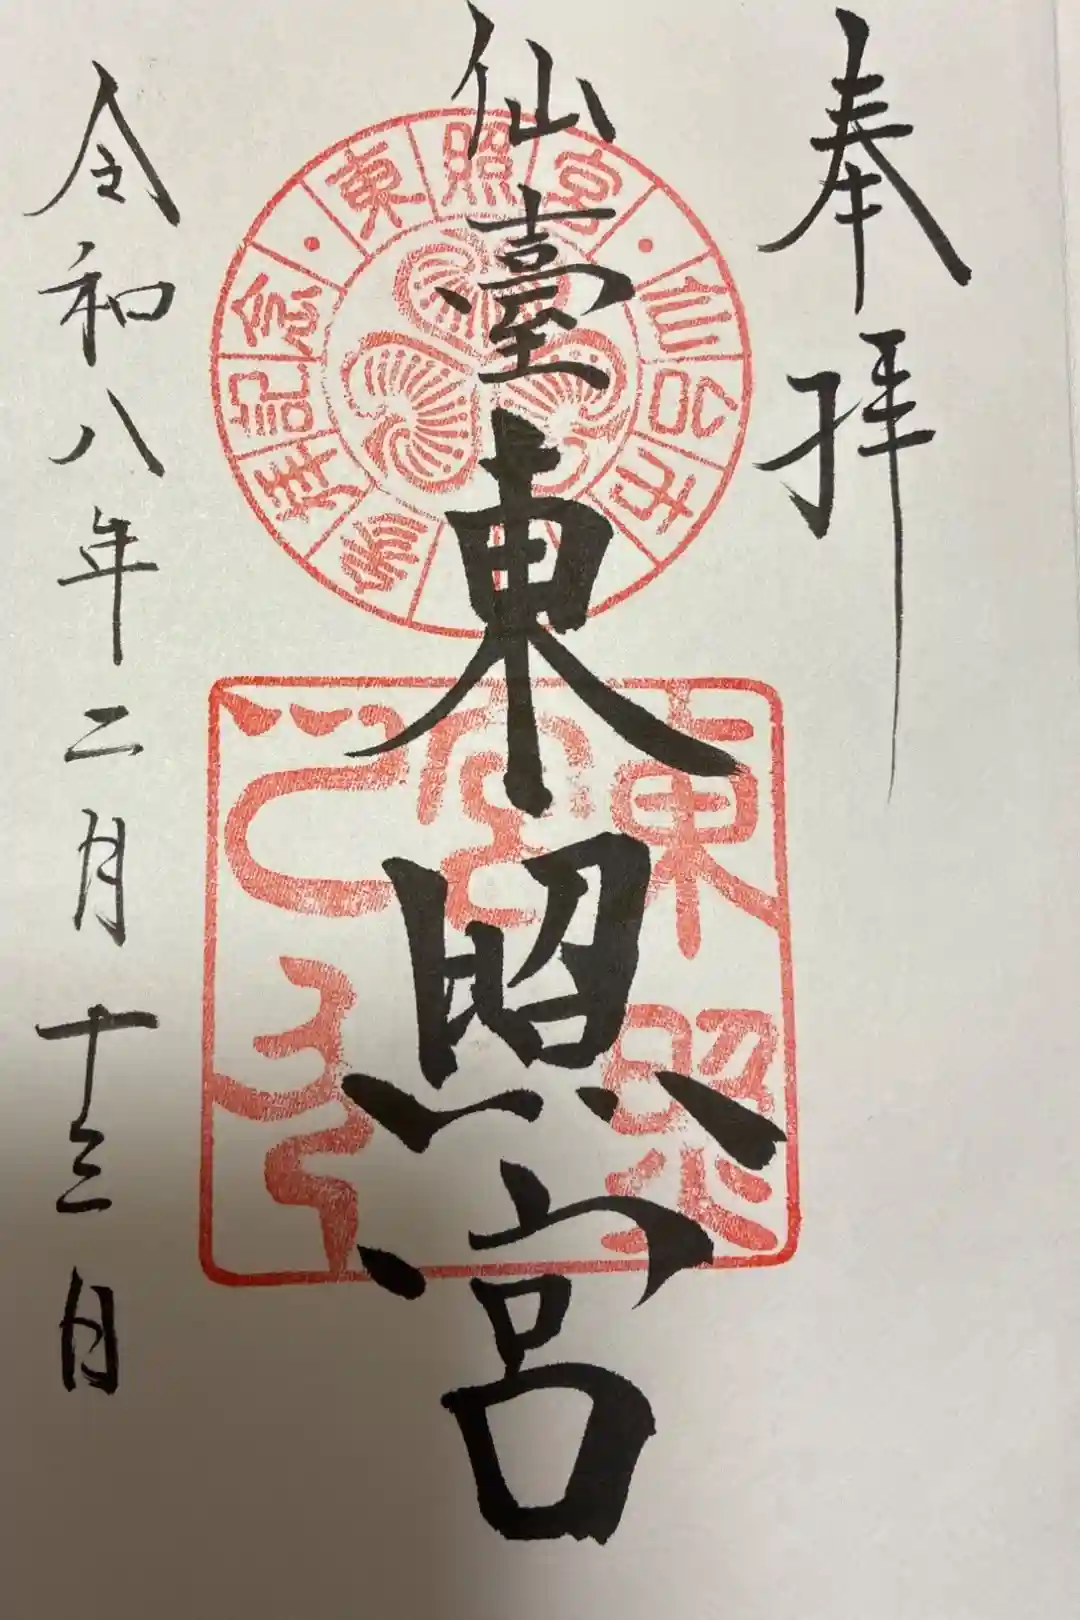 奉拝
仙臺東照宮
令和八年二月十三日
東照宮・仙台市
參拝記念・
東照
宮